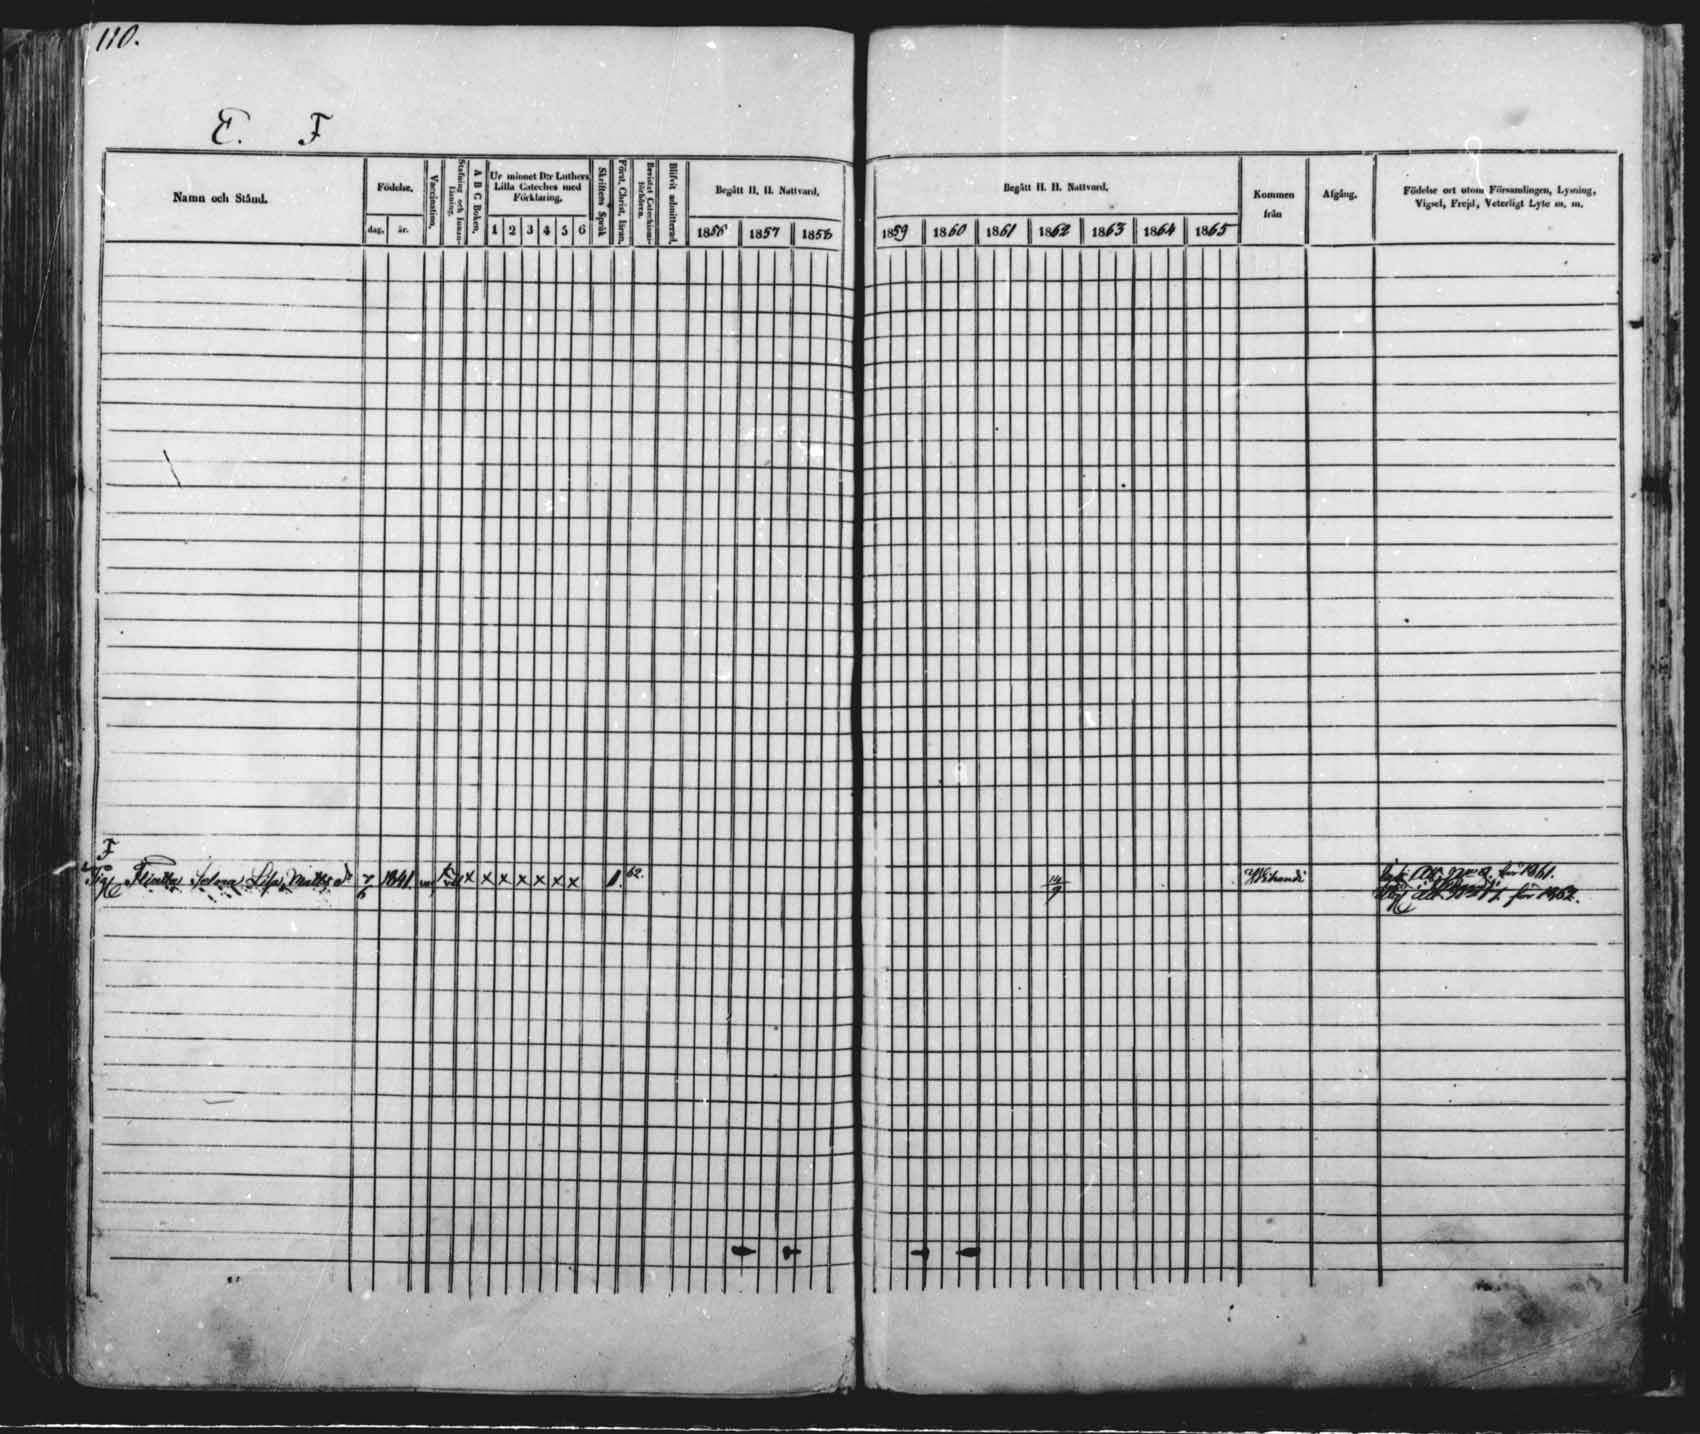 110.
E. F
Namn och Stånd.
Födelse.
dag.
år.
Vaccination.
Stafning och Innanläsning.
A B C Boken.
Ur minnet D:r Luthers Lilla Cateches med Förklaring.
1 2 3 4 5 6
Skriftens Språk
Först. Christ. läran.
Bevistat Catechismi-förhören.
Blifvit admitterad.
Begått H. H. Nattvard.
1856 1857 1858
Begått H. H. Nattvard.
1859 1860 1861 1862 1863 1864 1865
Kommen från
Afgång.
Födelse ort utom Församlingen, Lysning, Vigsel, Frejd, Veterligt Lyte m. m.
F
Selma Lisa Matts d:r 7/6 1841 x x x x x x x 1. 62. 14/9
för 1861.
för 1862.